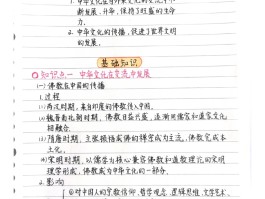 1. 中华文化在与外来文化的交流中不
断发展、升华,保持了旺盛的生命
力。
2. 中华文化的传播,促进了世界文明
的发展。
基础知识
知识点一 中华文化在交流中发展
(一) 佛教在中国的传播
1. 过程
(1) 两汉时期,来自印度的佛教传入中国。
(2) 魏晋南北朝时期,佛教日益兴盛,逐渐同儒家和道家文化
相融合。
(3) 隋唐时期,主张顿悟成佛的禅宗成为主流,佛教完成本
土化。
(4) 宋明时期,以儒学为核心兼容佛教和道教理论的宋明
理学形成,佛教成为中华文化的一部分。
2. 影响
①对中国人的宗教信仰、哲学观念、逻辑思维、文学艺术、